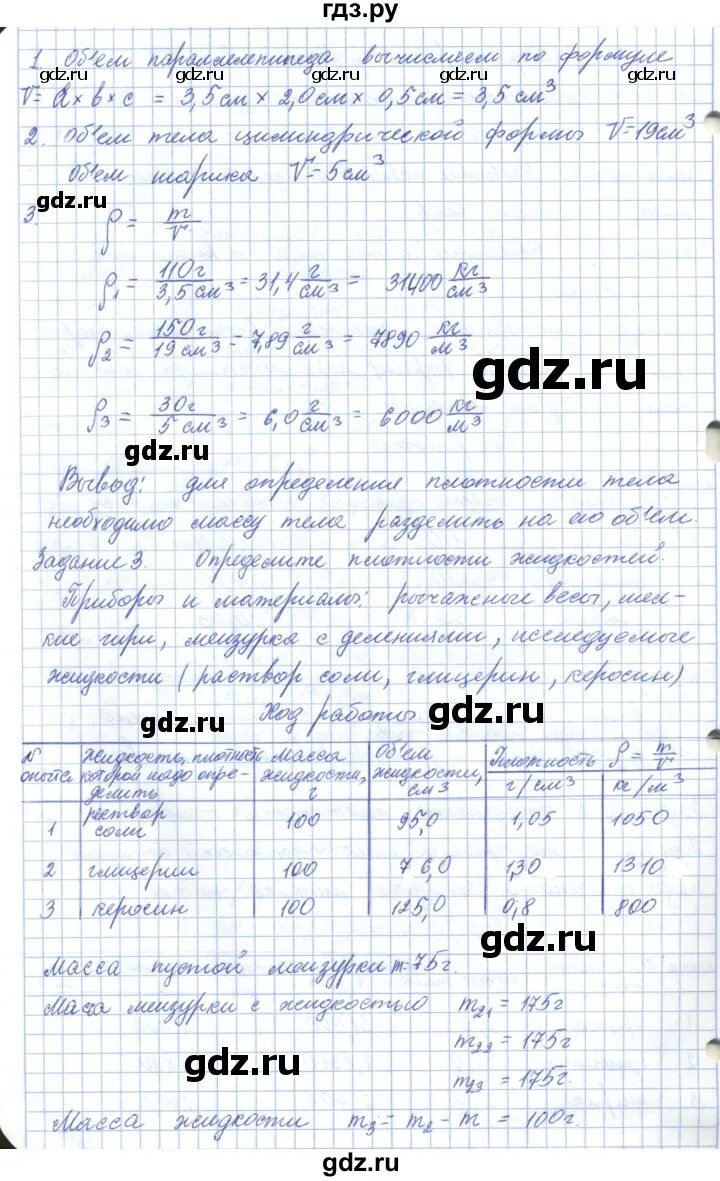 гдз.ру
1. Об'ем параллелепипеда вычисляем по формуле
gdz.ru gdz.ru gdz.ru gdz.ru
V= a×b×c = 3,5см × 2,0см × 0,5см = 3,5 см³
2. Об'ем тела цилиндрической формы V=19см³
Об'ем шарика V=5см³
gdz.ru gdz.ru
3. ρ = m/V
ρ₁ = 110г/3,5см³ = 31,4 г/см³ = 31400 кг/см³
ρ₂ = 150г/19см³ = 7,89 г/см³ = 7890 кг/м³
gdz.ru
ρ₃ = 30г/5см³ = 6,0 г/см³ = 6000 кг/м³
gdz.ru
Вывод: для определения плотности тела
необходимо массу тела разделить на его об'ем.
Задание 3. Определите плотности жидкостей.
Приборы и материалы: рычажные весы, мел-
кие гири, мензурка с делениями, исследуемые
жидкости (раствор соли, глицерин, керосин)
Ход работы
gdz.ru gdz.ru
N опыта | Жидкость, плотность которой надо опре-делить | Масса жидкости, г | Об'ем жидкости, см³ | Плотность ρ = m/V г/см³ | кг/м³
1 раствор соли 100 95,0 1,05 1050
2 глицерин 100 76,0 1,30 1310
3 керосин 100 125,0 0,8 800
gdz.ru
Масса пустой мензурки m=75г.
Масса мензурки с жидкостью m₂₁ = 175г
m₂₂ = 175г
gdz.ru
m₂₃ = 175г.
Масса жидкости m₃ = m₂ - m = 100г.
gdz.ru
gdz.ru